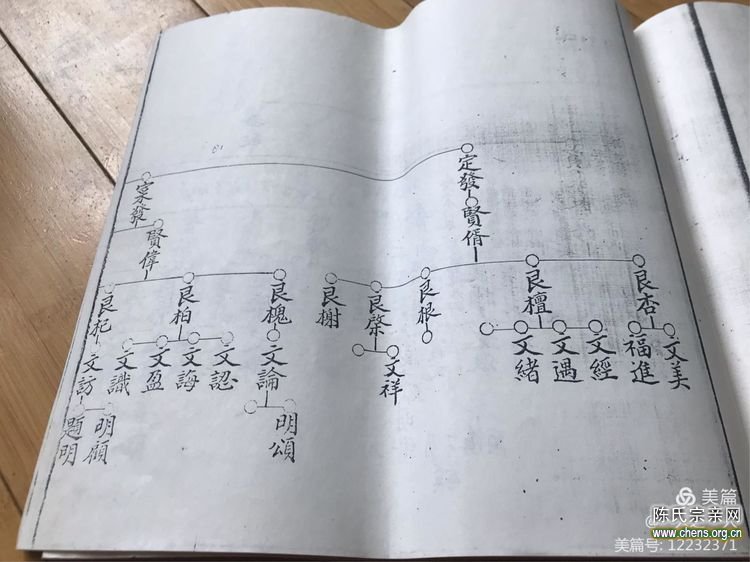 定發
賢偱
良杏
文美
福進
良檀
文經
文遇
文緒
良根
良榮
文祥
良榭
定發
賢偉
良槐
文論
明頌
良柏
文認
文誨
文盈
文識
良杞
文訪
明顧
題明
美篇
陈氏宗亲网
www.chens.org.cn
美篇号: 12232371